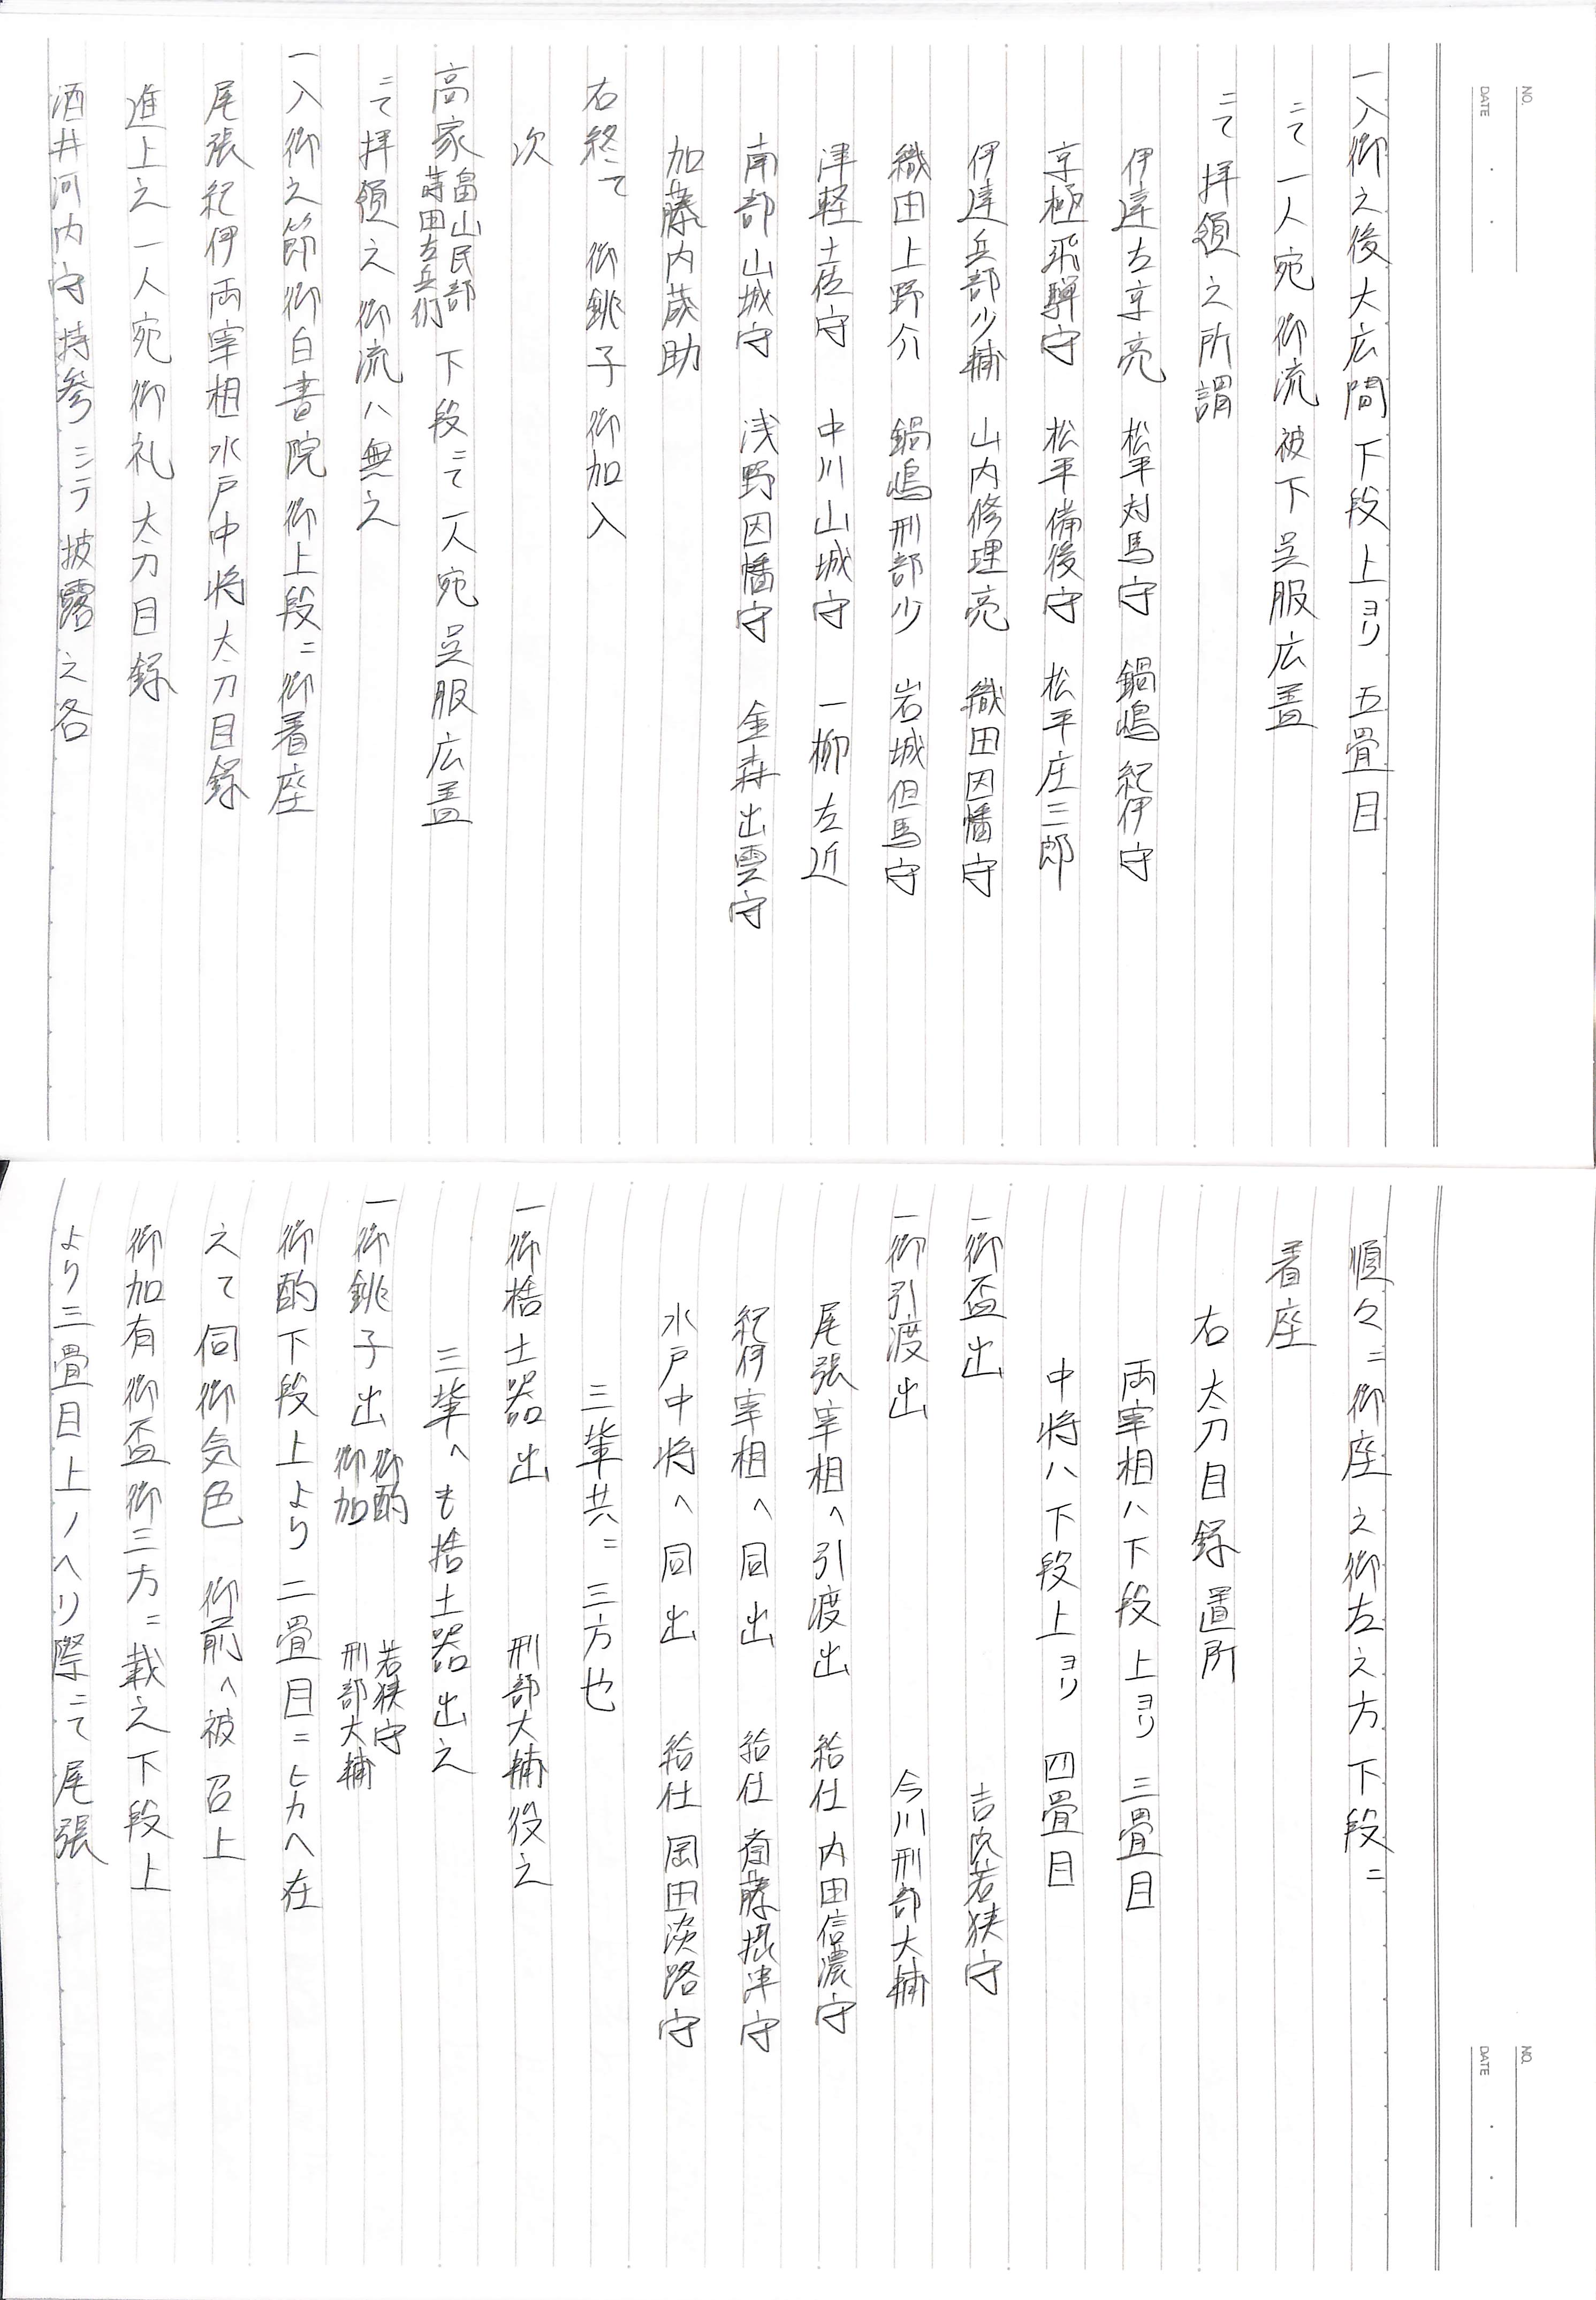 NO.
DATE
一入御之後大広間下段上ヨリ 五畳目
ニて一人宛御流被下呉服広蓋
ニて拝領之所謂
伊達左京亮 松平対馬守 鍋嶋紀伊守
京極飛騨守 松平備後守 松平庄三郎
伊達兵部少輔 山内修理亮 織田因幡守
織田上野介 鍋嶋刑部少 岩城但馬守
津軽土佐守 中川山城守 一柳左近
南部山城守 浅野因幡守 金森出雲守
加藤内蔵助
右終て 御銚子御加入
次
高家 畠山民部 蒔田左兵衛 下段ニて一人宛呉服広蓋
ニて拝領之御流ハ無之
一入御之節御白書院御上段ニ御着座
尾張紀伊両宰相水戸中将太刀目録
進上之一人宛御礼太刀目録
酒井河内守持参シテ披露之各
NO.
DATE
順々ニ御座之御左之方下段ニ
着座
右太刀目録置所
両宰相ハ下段上ヨリ 三畳目
中将ハ下段上ヨリ 四畳目
一御盃出 吉良若狭守
一御引渡出 今川刑部大輔
尾張宰相へ引渡出 給仕 内田信濃守
紀伊宰相へ同出 給仕 斎藤摂津守
水戸中将へ同出 給仕 岡田淡路守
三輩共ニ 三方也
一御捨土器出 刑部大輔役之
三輩へも捨土器出之
一御銚子出 御酌 御加 若狭守 刑部大輔
御酌下段上より二畳目ニヒカへ在
之て伺御気色 御前へ被召上
御加有御盃御三方ニ載之下段上
より三畳目上ノヘリ際ニて尾張